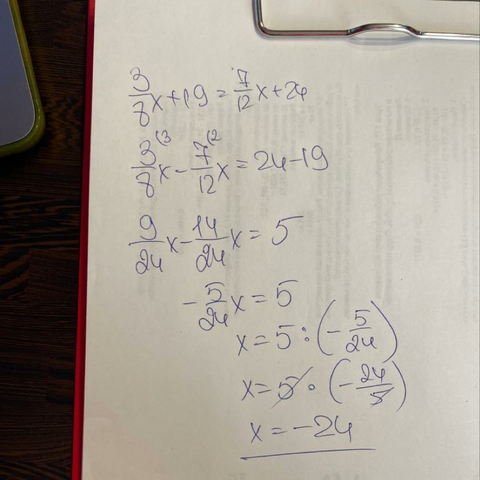 3/8 x + 19 = 7/12 x + 24
3/8 (3 x - 7/12 (2 x = 24 - 19
9/24 x - 14/24 x = 5
- 5/24 x = 5
x = 5 : (- 5/24)
x = 5 · (- 24/5)
x = -24